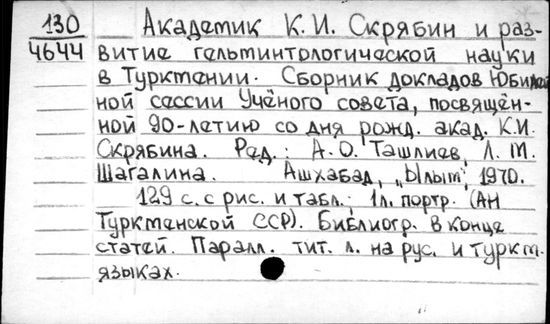 130 Академик К.И. Скрябин и раз-
4644 витие гельминтологической науки
в Туркмении. Сборник докладов Юбилей
ной сессии Учёного совета, посвящён-
ной 90-летию со дня рожд. акад. К.И.
Скрябина. Ред.: А.О. Ташлиев, Л.М.
Шагалина. Ашхабад, „Ылым", 1970.
129 с. с рис. и табл.; 1л. портр. (АН
Туркменской ССР). Библиогр. в конце
статей. Паралл. тит. л. на рус. и туркм.
языках.